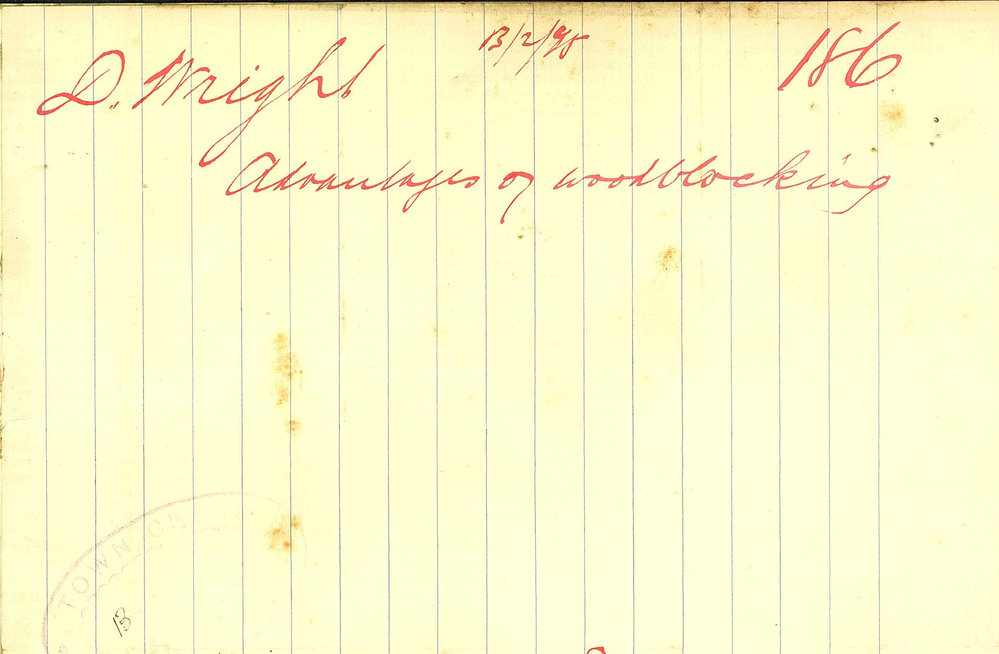 D. Wright 13/2/95 186
Advantages of woodblocking
TOWN OF
13